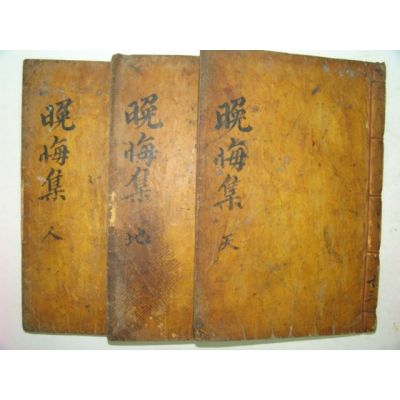 晩悔集 天
晩悔集 地
晩悔集 人